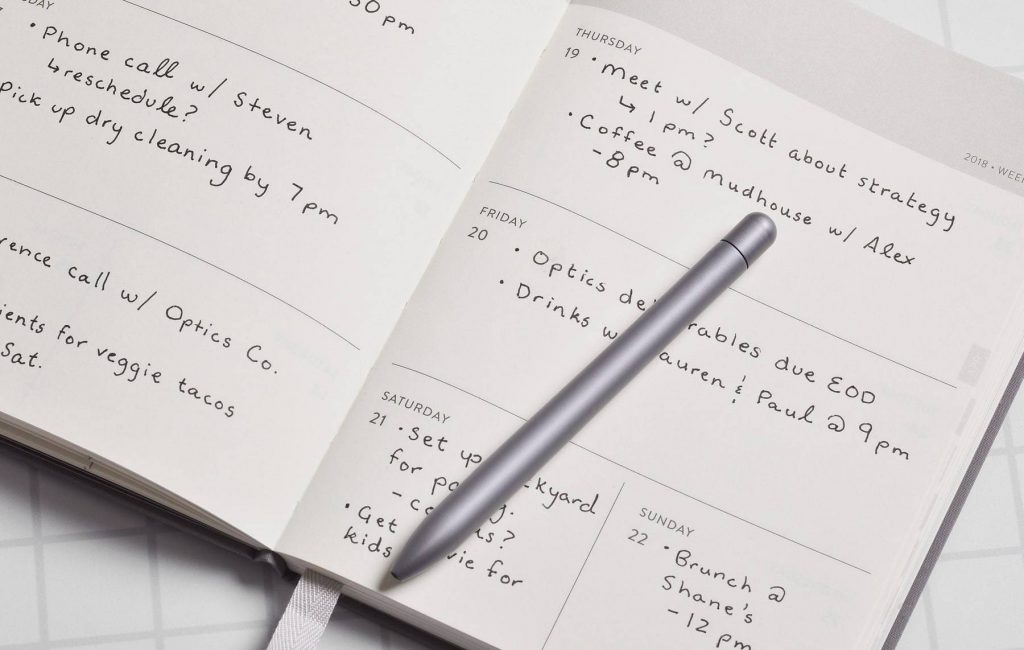 30 pm
• Phone call w/ Steven
↳ reschedule?
Pick up dry cleaning by 7 pm
call w/ Optics Co.
for veggie tacos
Sat.
2018 • WEE
THURSDAY
19 • Meet w/ Scott about strategy
↳ 1 pm?
• Coffee @ Mudhouse w/ Alex
- 8 pm
FRIDAY
20 • Optics due EOD
• Drinks & Paul @ 9 pm
SATURDAY
21 • Set up
for
-
• Get for
kids
SUNDAY
22 • Brunch @
Shane's
- 12 pm